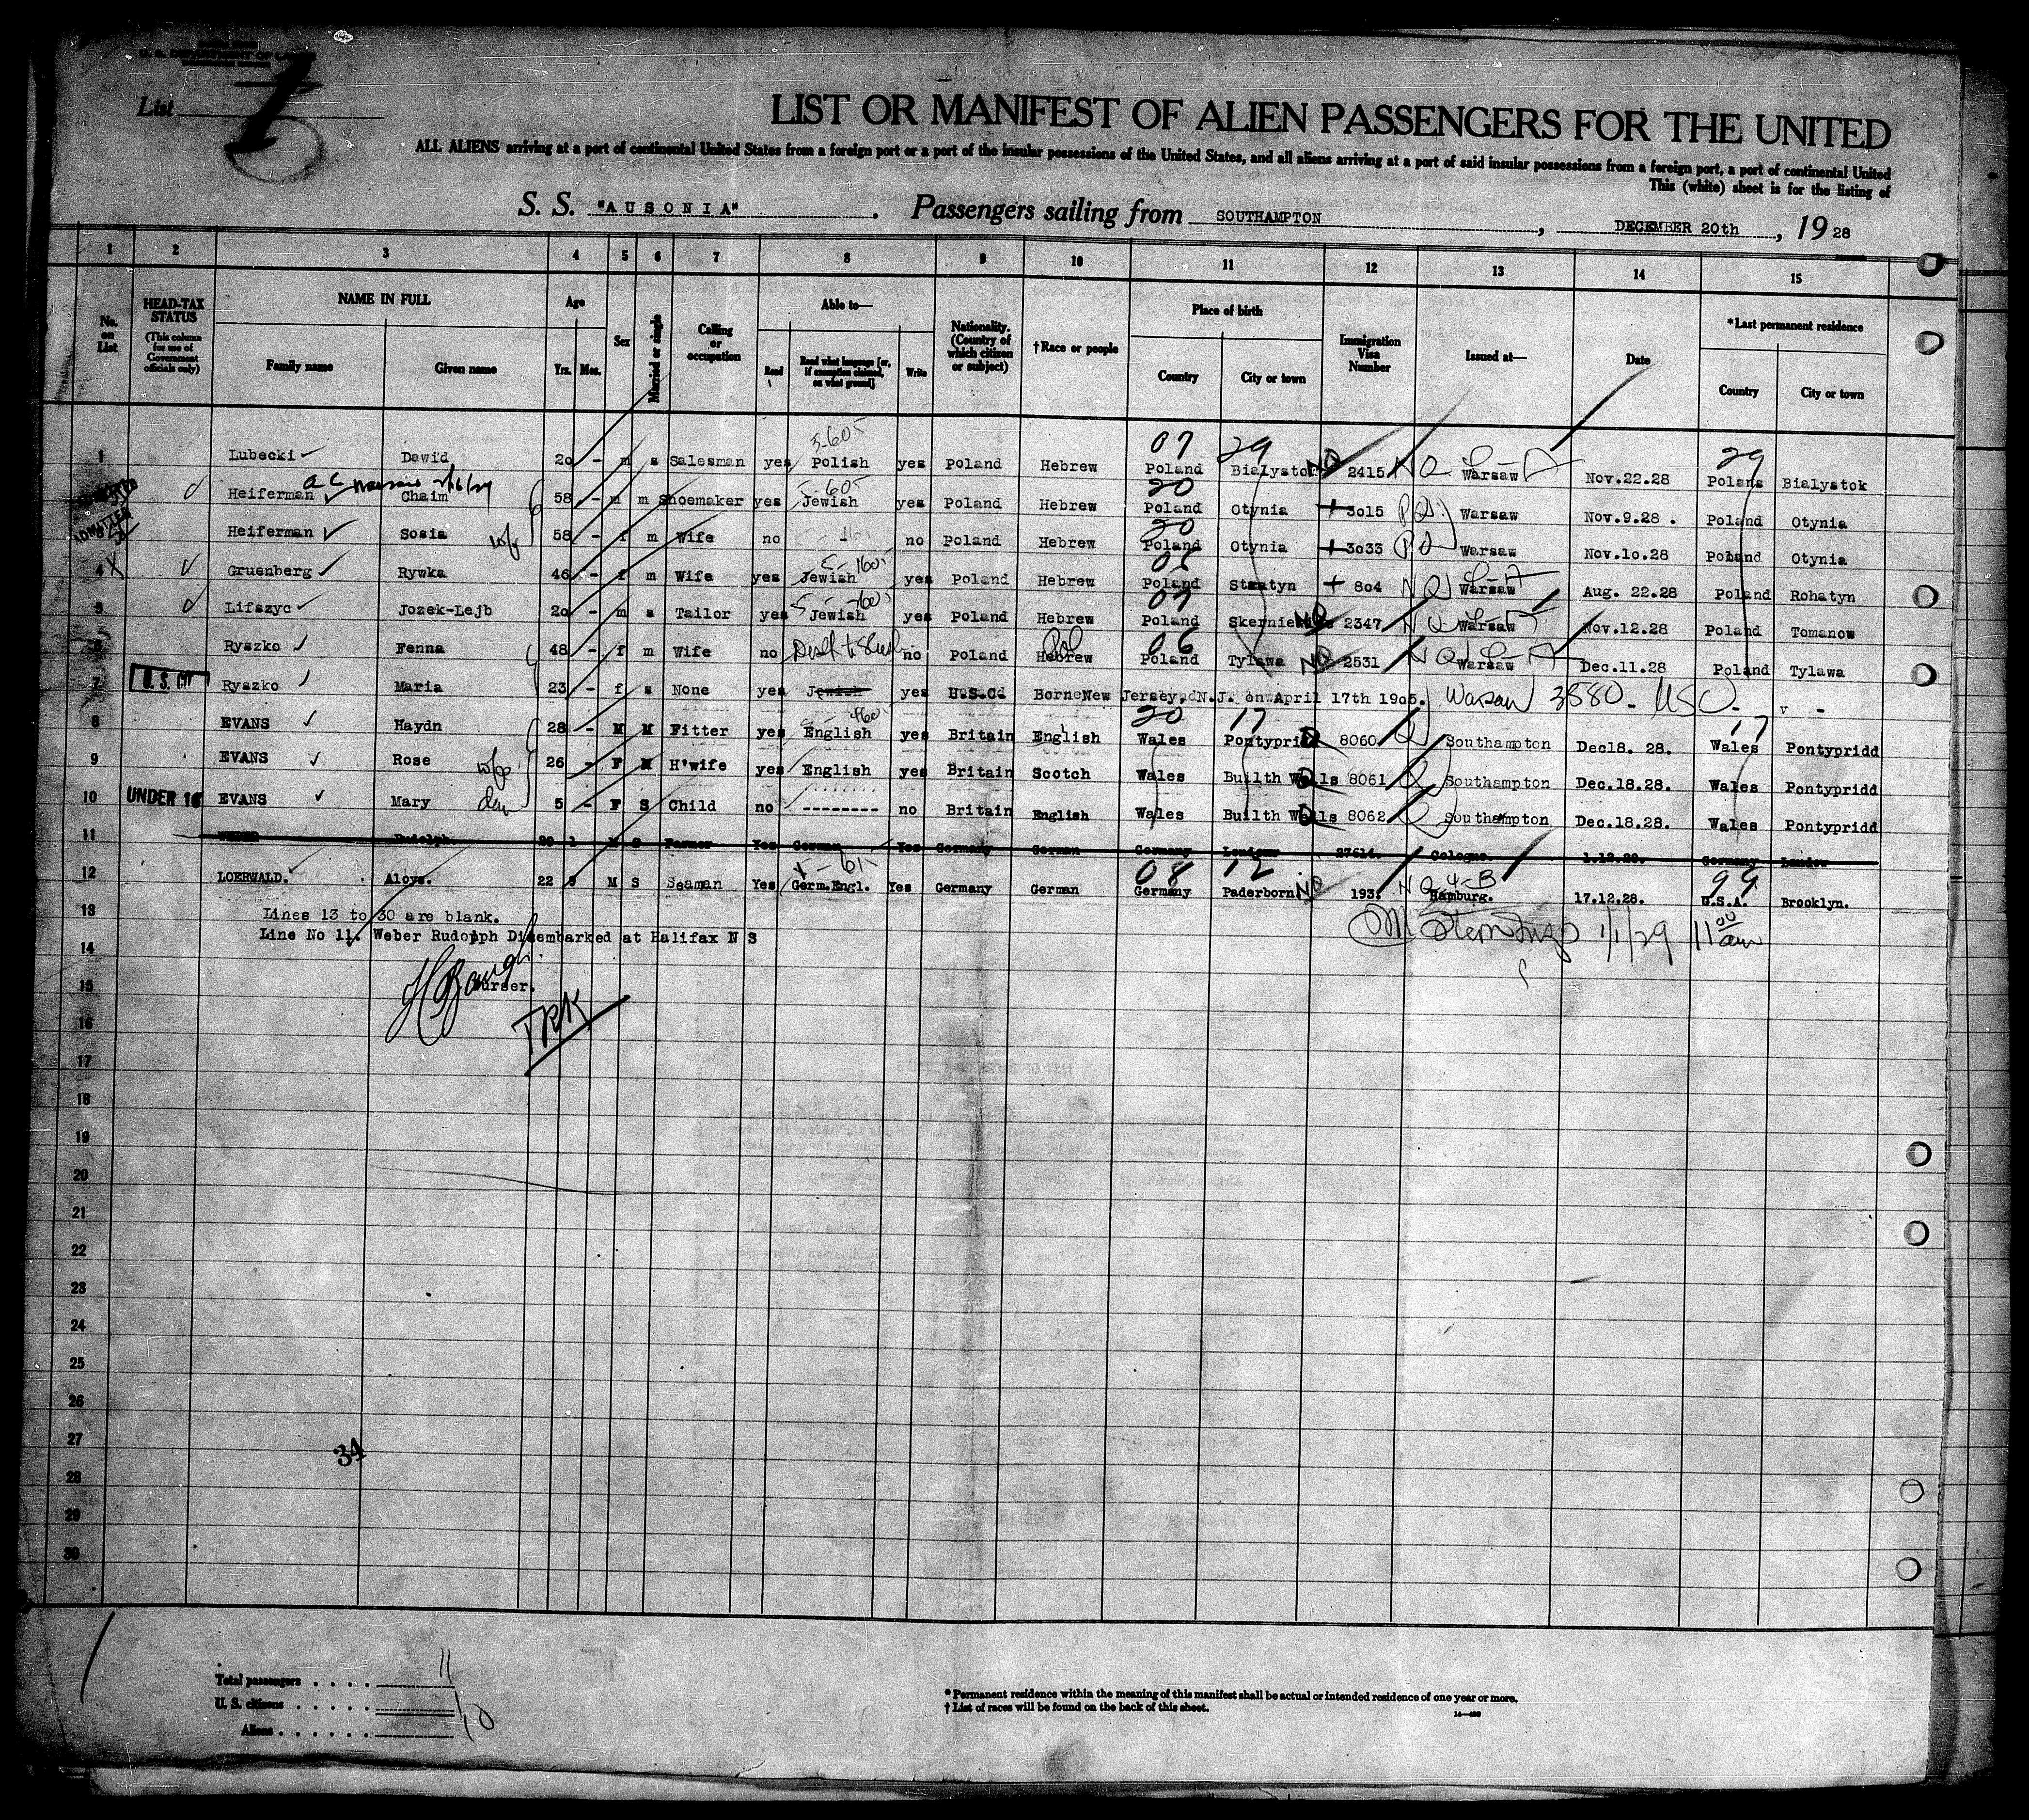 U. S. DEPARTMENT OF LABOR
List 1
LIST OR MANIFEST OF ALIEN PASSENGERS FOR THE UNITED
ALL ALIENS arriving at a port of continental United States from a foreign port or a port of the insular possessions of the United States, and all aliens arriving at a port of said insular possessions from a foreign port, a port of continental United
This (white) sheet is for the listing of
S. S. "AUSONIA". Passengers sailing from SOUTHAMPTON, DECEMBER 20th, 19 28
1 2 3 4 5 6 7 8 9 10 11 12 13 14 15
No. on List
HEAD-TAX STATUS (This column for use of Government officials only)
NAME IN FULL
Family name Given name
Age
Yrs. Mos.
Sex
Married or single
Calling or occupation
Able to—
Read Read what language [or, if exemption claimed, on what ground] Write
Nationality. (Country of which citizen or subject)
†Race or people
Place of birth
Country City or town
Immigration Visa Number
Issued at—
Date
*Last permanent residence
Country City or town
07 29 29
1 Lubecki Dawid 20 - m s Salesman yes Polish yes Poland Hebrew Poland Bialystok 2415 Warsaw Nov.22.28 Poland Bialystok
20
Heiferman Chaim 58 - m m Shoemaker yes Jewish yes Poland Hebrew Poland Otynia 3015 Warsaw Nov.9.28. Poland Otynia
20
Heiferman Sosia wife 58 - f m Wife no no Poland Hebrew Poland Otynia 3033 Warsaw Nov.10.28 Poland Otynia
06
4 Gruenberg Rywka 46 - f m Wife yes Jewish yes Poland Hebrew Poland Stratyn 804 Warsaw Aug. 22.28 Poland Rohatyn
07
5 Lifszyc Jozek-Lejb 20 - m s Tailor yes Jewish yes Poland Hebrew Poland 2347 Warsaw Nov.12.28 Poland Tomanow
06
6 Ryszko Fenna 48 - f m Wife no no Poland Hebrew Pol Poland Tylawa 2531 Warsaw Dec.11.28 Poland Tylawa
7 U. S. CIT Ryszko Maria 23 - f s None yes Jewish yes U.S.C. Born New Jersey, N.J. on April 17th 1905. Warsaw 3580 - USC - v -
20 17 17
8 EVANS Haydn 28 - M M Fitter yes English yes Britain English Wales Pontypridd 8060 Southampton Dec18. 28. Wales Pontypridd
9 EVANS Rose wife 26 - F M H'wife yes English yes Britain Scotch Wales Builth Wells 8061 Southampton Dec.18.28. Wales Pontypridd
10 UNDER 16 EVANS Mary dau 5 - F S Child no -------- no Britain English Wales Builth Wells 8062 Southampton Dec.18.28. Wales Pontypridd
11 WEBER Rudolph. M S Farmer Yes German Yes Germany German Germany 27614. Cologne. Germany
08 12 99
12 LOERWALD. Aloys. 22 M S Seaman Yes Germ.Engl. Yes Germany German Germany Paderborn 193. Hamburg. 17.12.28. U.S.A. Brooklyn.
13 Lines 13 to 30 are blank.
1/1/29 11 00 am
14 Line No 11. Weber Rudolph Disembarked at Halifax N S
15 Purser.
16
17
18
19
20
21
22
23
24
25
26
27
34
28
29
30
Total passengers . . . . 11
U. S. citizens . . . . . 1
Aliens . . . . . . 10
* Permanent residence within the meaning of this manifest shall be actual or intended residence of one year or more.
† List of races will be found on the back of this sheet.